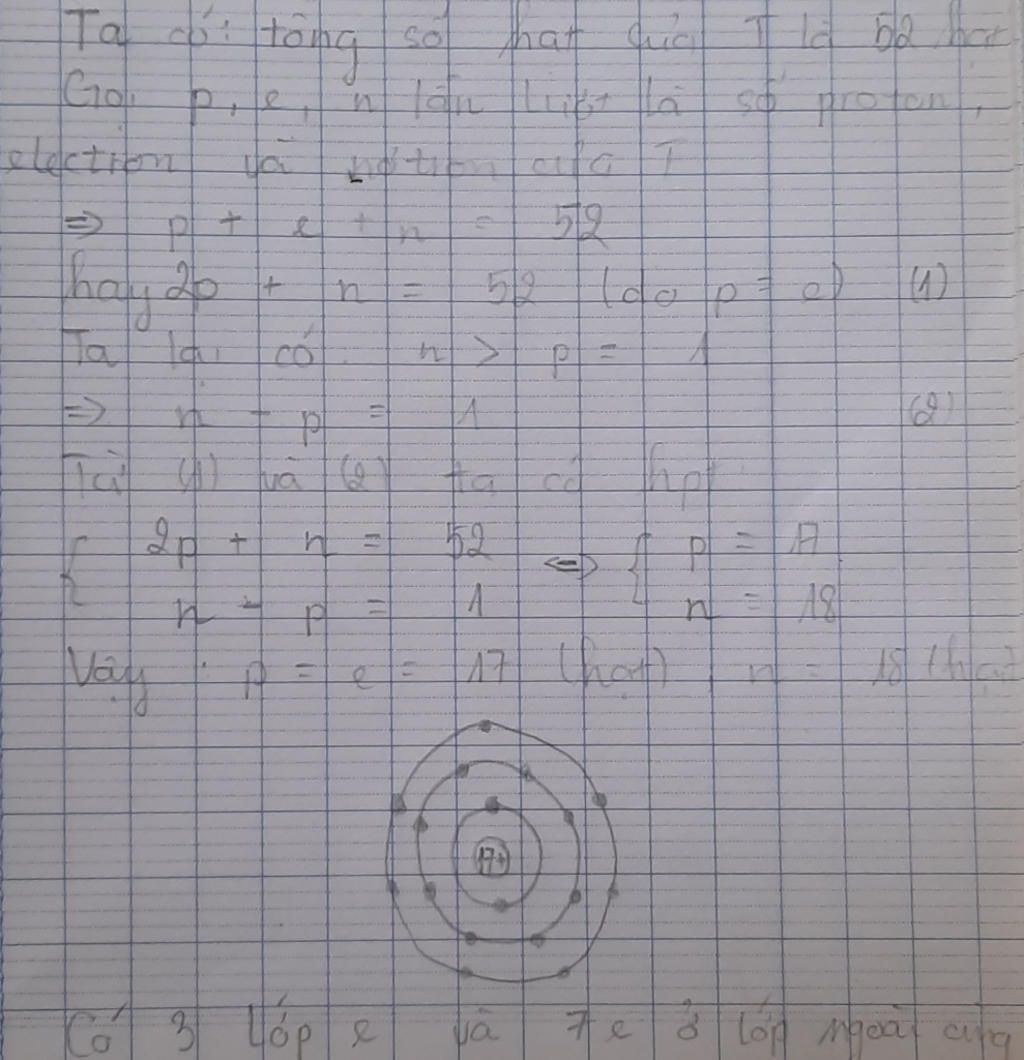 Ta có: tổng số hạt của T là 52 hạt
Gọi p, e, n lần lượt là số proton,
electron và nơtron của T
=> p + e + n = 52
hay 2p + n = 52 (do p = e) (1)
Ta lại có n > p = 1
=> n - p = 1 (2)
Từ (1) và (2) ta có hpt
2p + n = 52 <=> p = 17
n - p = 1 n = 18
Vậy : p = e = 17 (hạt) n = 18 (hạt)
17+
Có 3 lớp e và 7 e ở lớp ngoài cùng